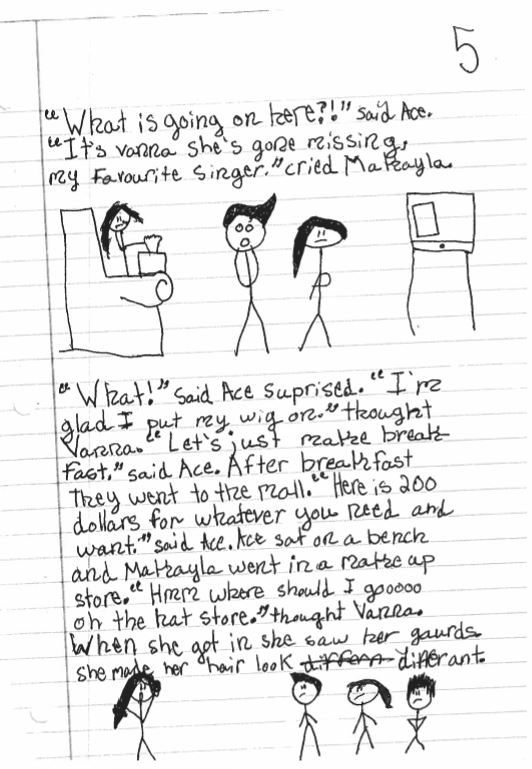 5
"What is going on here?!" said Ace.
"It's vanna she's gone missing,
my Favourite singer." cried Makayla.
"What!" said Ace suprised. "I'm
glad I put my wig on." thought
Vanna. "Let's just make break-
fast." said Ace. After breakfast
they went to the mall. "Here is 200
dollars for whatever you need and
want." said Ace. Ace sat on a bench
and Makayla went in a make up
store. "Hmm where should I gooooo
oh the hat store." thought Vanna.
When she got in she saw her gaurds.
she made her hair look differn differant.